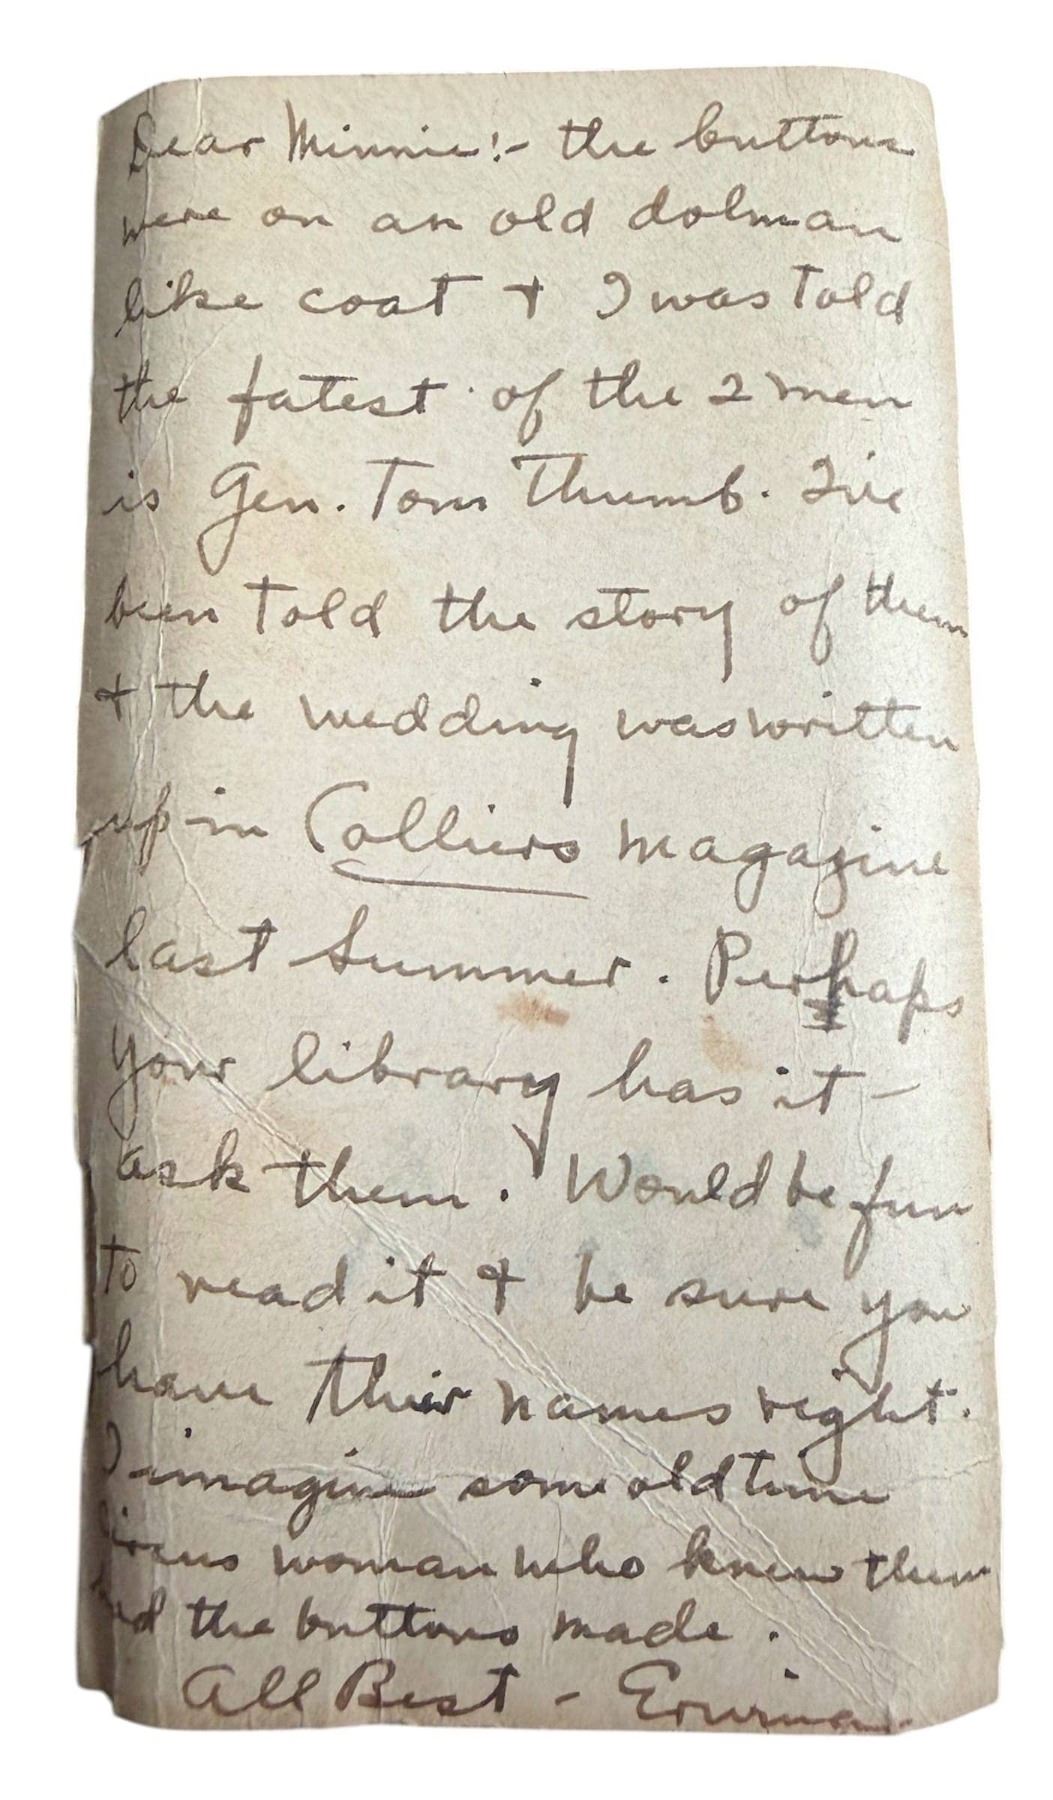 Dear Minnie:- the buttons
were on an old dolman
like coat & I was told
the fatest of the 2 men
is Gen. Tom Thumb. I've
been told the story of them
& the wedding was written
up in Colliers magazine
last summer. Perhaps
your library has it -
ask them. Would be fun
to read it & be sure you
have their names right.
I imagine some old time
circus woman who knew them
had the buttons made.
All Best - Erwina